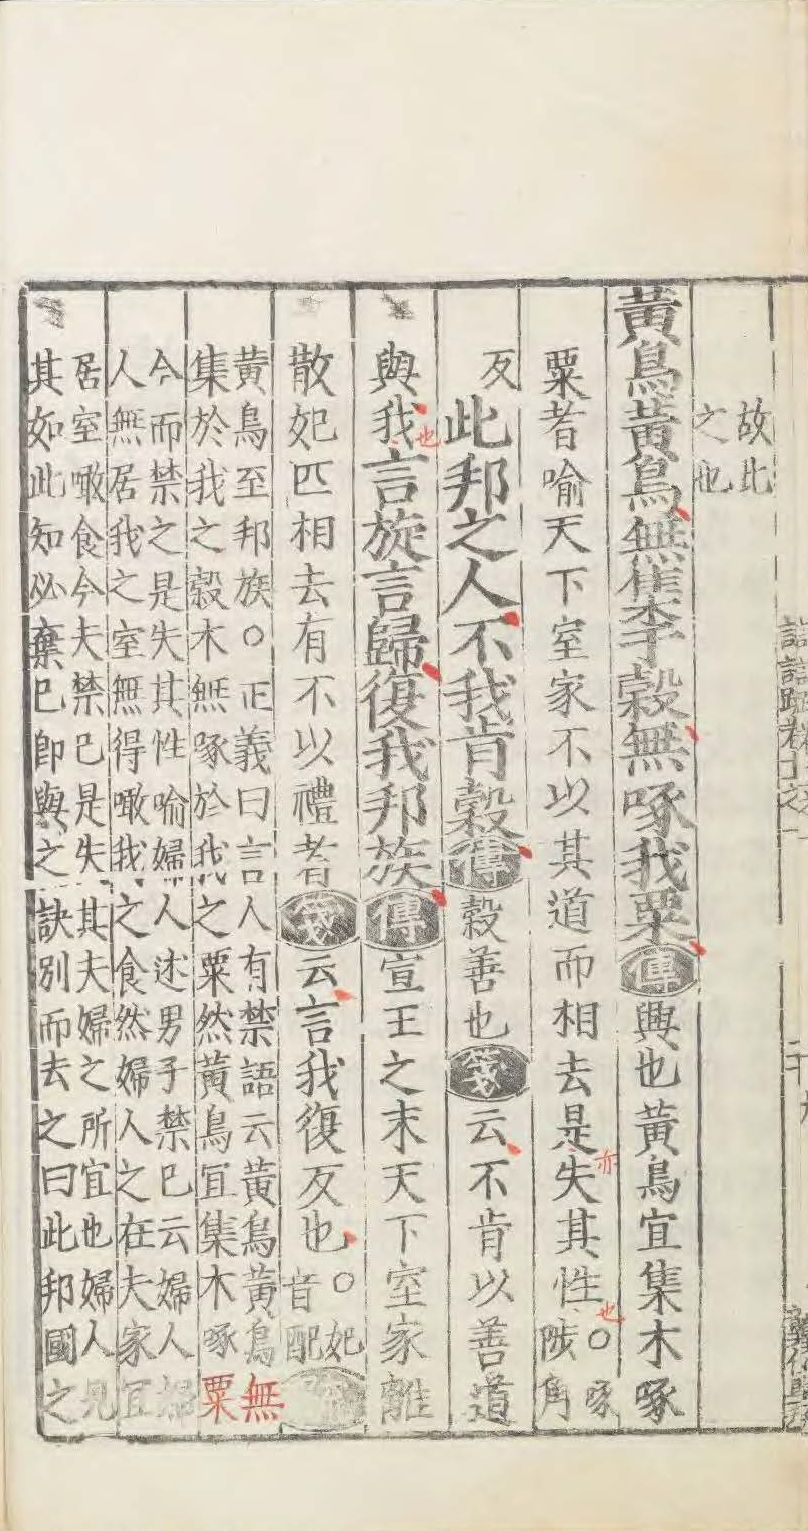 故此
之也
黃鳥黃鳥無集于穀無啄我粟傳興也黃鳥宜集木啄
粟者喻天下室家不以其道而相去是失其性○啄
陟角
亦
也
反此邦之人不我肯穀傳穀善也箋云不肯以善道
與我言旋言歸復我邦族傳宣王之末天下室家離
也
散妃匹相去有不以禮者箋云言我復反也○妃
音配
黃鳥至邦族○正義曰言人有禁語云黃鳥黃鳥無
集於我之穀木無啄於我之粟然黃鳥宜集木啄粟
今而禁之是失其性喻婦人述男子禁已云婦人婦
人無居我之室無得噉我之食然婦人之在夫家宜
居室噉食今夫禁已是失其夫婦之所宜也婦人見
其如此知必棄已即與之訣別而去之曰此邦國之